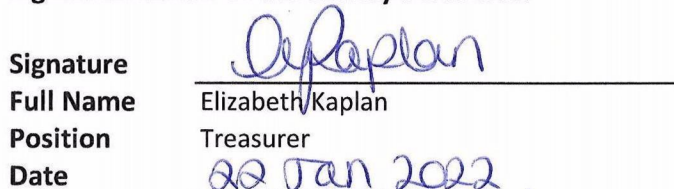 Signature
Full Name Elizabeth Kaplan
Position Treasurer
Date 22 Jan 2022